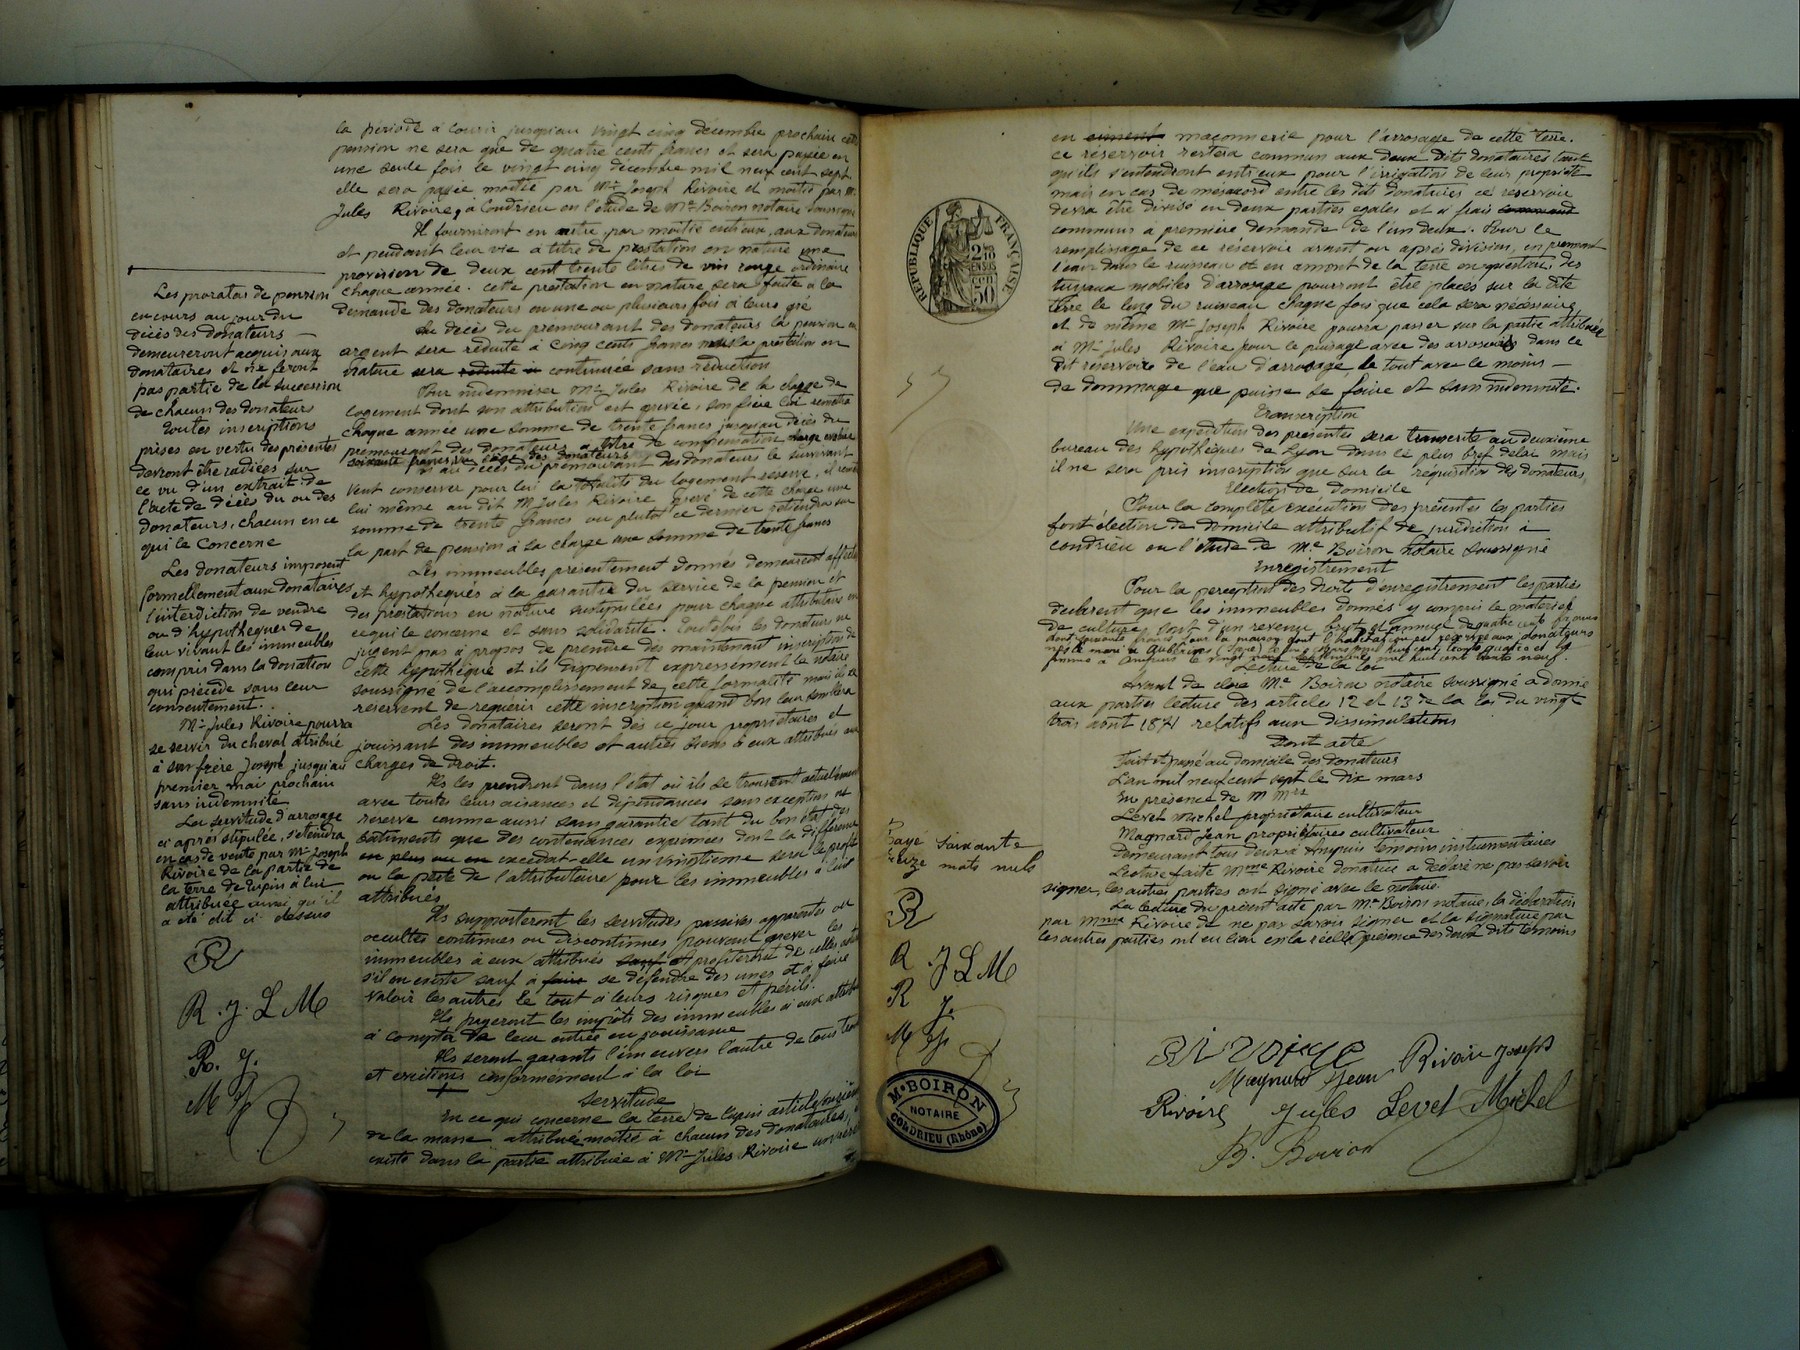 la période à courir jusqu'au vingt cinq décembre prochain cette
pension ne sera que de quatre cents francs et sera payée en
une seule fois le vingt cinq décembre mil neuf cent sept
elle sera payée moitié par Mr Joseph Rivoire et moitié par Mr
Jules Rivoire, à Condrieu en l'étude de Me Boiron notaire soussigné
Il fourniront en outre par moitié entr'eux, aux donateurs
et pendant leur vie à titre de prestation en nature une
provision de deux cent trente litres de vin rouge ordinaire
chaque année. cette prestation en nature sera faite à la
demande des donateurs en une ou plusieurs fois à leurs gré
Au décès du prémourant des donateurs la pension en
argent sera réduite à cinq cents francs mais la prestation en
nature sera réduite à continuée sans réduction
Pour indemniser Mr Jules Rivoire de la charge de
logement dont son attribution est grevée, son frère lui remettra
chaque année une somme de trente francs jusqu'au décès du
prémourant des donateurs à titre de compensation
soixante francs des donateurs
au décès du prémourant des donateurs le survivant
veut conserver pour lui la totalité du logement réservé, il
lui même au dit Mr Jules Rivoire grevé de cette charge une
somme de trente francs ou plutôt ce dernier retiendra sur
la part de pension à sa charge une somme de trente francs
Les immeubles présentement donnés demeurent affectés
et hypothéqués à la garantie du service de la pension et
des prestations en nature sustipulées pour chaque attributaire en
ce qui le concerne et sans solidarité. Toutefois les donateurs ne
jugent pas à propos de prendre dès maintenant inscription de
cette hypothèque et ils dispensent expressément le notaire
soussigné de l'accomplissement de cette formalité mais ils se
réservent de requérir cette inscription quand bon leur semblera
Les donataires seront dès ce jour propriétaires et
jouissant des immeubles et autres biens à eux attribués aux
charges de droit.
Ils les prendront dans l'état où ils se trouvent actuellement
avec toutes leurs aisances et dépendances sans exception ni
réserve comme aussi sans garantie tant du bon état des
bâtiments que des contenances exprimées dont la différence
en plus ou en excédat-elle un vingtième sera le profit
ou la perte de l'attributaire pour les immeubles à lui
attribués
Ils supporteront les servitudes passives apparentes ou
occultes continues ou discontinues pouvant grever les
immeubles à eux attribués sauf et profiteront de celles actives
s'il en existe sauf à faire se défendre des unes et à faire
valoir les autres le tout à leurs risques et périls.
Ils payeront les impôts des immeubles à eux attribués
à compter de leur entrée en jouissance
Ils seront garants l'un envers l'autre de tous troubles
et évictions conformément à la loi
Servitude
En ce qui concerne la terre de Lupin article
de la masse attribuée moitié à chacun des donataires, il
existe dans la partie attribuée à Mr Jules Rivoire un réservoir
Les proratas de pension
en cours au jour du
décès des donateurs
demeureront acquis aux
donataires et ne feront
pas partie de la succession
de chacun des donateurs
Toutes inscriptions
prises en vertu des présentes
devront être radiées sur
le vu d'un extrait de
l'acte de décès du ou des
donateurs, chacun en ce
qui le concerne
Les donateurs imposent
formellement aux donataires
l'interdiction de vendre
ou d'hypothéquer de
leur vivant les immeubles
compris dans la donation
qui précède sans leur
consentement.
Mr Jules Rivoire pourra
se servir du cheval attribué
à son frère Joseph jusqu'au
premier mai prochain
sans indemnité
La servitude d'arrosage
ci après stipulée, s'étendra
en cas de vente par Mr Joseph
Rivoire de la partie de
la terre de Lupin à lui
attribuée ainsi qu'il
a été dit ci dessus
R
R. J. L M
R. J.
M J
en ciment maçonnerie pour l'arrosage de cette terre.
ce réservoir restera commun aux deux dits donataires tant
qu'ils s'entendront entr'eux pour l'irrigation de leur propriété
mais en cas de désaccord entre les dits donataires ce réservoir
devra être divisé en deux parties égales et à frais comment
communs à première demande de l'un d'eux. Pour le
remplissage de ce réservoir avant ou après division, en prenant
l'eau dans le ruisseau et en amont de la terre en question, des
tuyaux mobiles d'arrosage pourront être placés sur la dite
terre le long du ruisseau chaque fois que cela sera nécessaire
et de même Mr Joseph Rivoire pourra passer sur la partie attribuée
à Mr Jules Rivoire pour le puisage avec des arrosoirs dans ce
dit réservoir de l'eau d'arrosage le tout avec le moins
de dommage que puisse se faire et sans indemnité.
Transcription
Une expédition des présentes sera transcrite au deuxième
bureau des hypothèques de Lyon dans le plus bref délai mais
il ne sera pris inscription que sur la réquisition des donateurs,
Election de domicile
Pour la complète exécution des présentes les parties
font élection de domicile attributif de juridiction à
Condrieu en l'étude de Me Boiron notaire soussigné
Enregistrement
Pour la perception des droits d'enregistrement les parties
déclarent que les immeubles donnés y compris le matériel
de culture, sont d'un revenu brut et annuel de quatre cents francs
dont soixante francs pour la maison dont l'habitation est réservée aux donateurs
mil huit cent trente quatre et la
femme à Ampuis le vingt mil huit cent trente neuf.
Lecture de la loi
Avant de clore Me Boiron notaire soussigné a donné
aux parties lecture des articles 12 et 13 de la loi du vingt
trois août 1871 relatifs aux dissimulations
Dont acte
Fait et passé au domicile des donateurs
L'an mil neuf cent sept le dix mars
En présence de M Mrs
Levet Michel propriétaire cultivateur
Magnard Jean propriétaires cultivateur
demeurant tous deux à Ampuis témoins instrumentaires
Lecture faite Mme Rivoire donatrice a déclaré ne pas savoir
signer, les autres parties ont signé avec le notaire.
La lecture du présent acte par Me Boiron notaire, la déclaration
par Mme Rivoire de ne pas savoir signer et la signature par
les autres parties ont eu lieu en la réelle présence des deux dits témoins
RÉPUBLIQUE FRANÇAISE
Rayé soixante
treize mots nuls
R
R. J L M
R J.
M J
Me BOIRON
NOTAIRE
CONDRIEU (Rhône)
Rivoire Rivoire Joseph
Magnard Jean
Rivoire Jules Levet Michel
B. Boiron